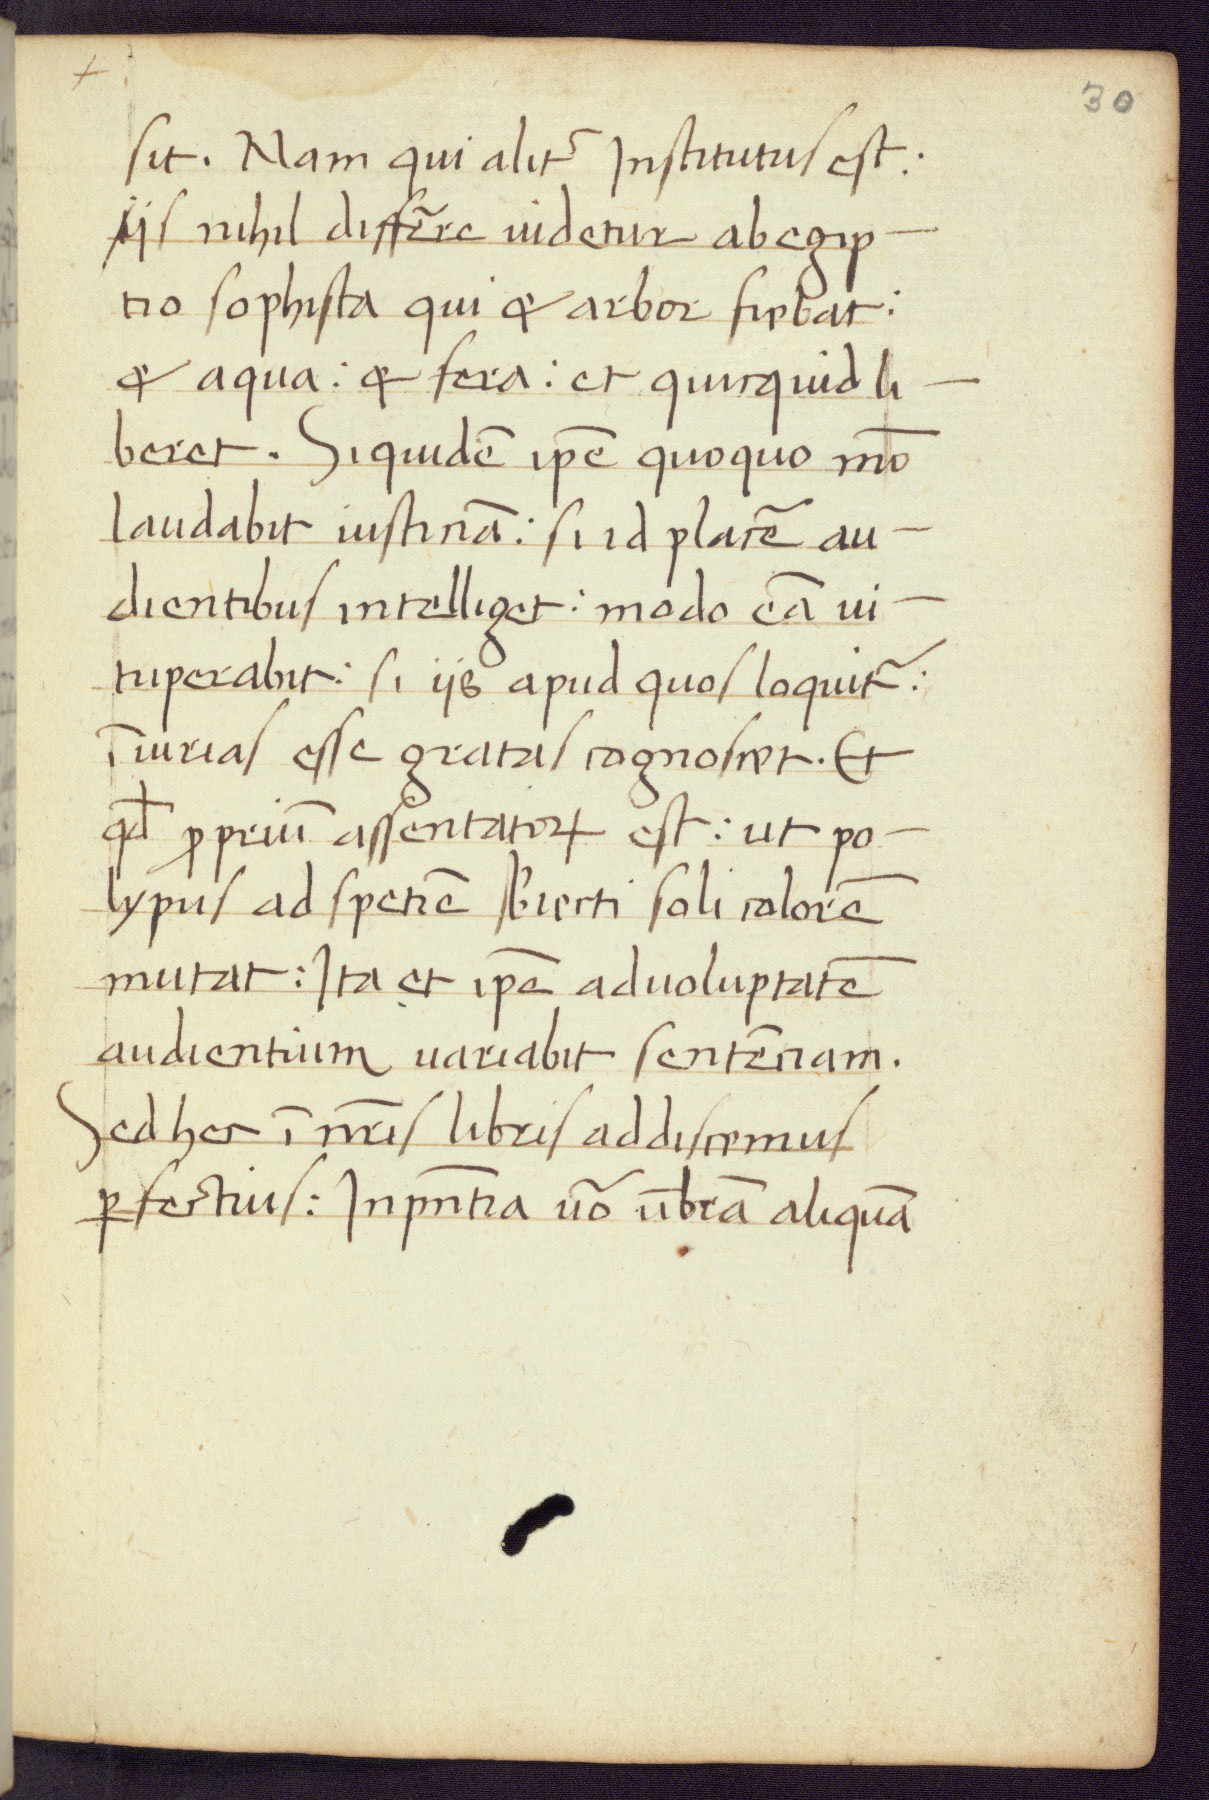 +
30
sit. Nam qui alit᷑ Institutus est:
iis nihil differ̄e uidetur ab egip-
tio sophista qui & arbor fiebat:
& aqua: & fera: et quicquid li-
beret. Siquidē ip̄e quoquo mō
laudabit iusticiā: si id placē au-
dientibus intelliget: modo eā ui-
tuperabit: si iis apud quos loquit᷑:
īiurias esse gratas cognoscet. Et
qđ ꝓpriū assentatoꝝ est: ut po-
lypus ad spetiē sb̄iecti soli colorē
mutat: Ita et ip̄e ad uoluptatē
audientium uariabit sentēciam.
Sed hec ī nr̄is libris addiscemus
ꝑfectius: In pn̄tia uō ūbrā aliquā